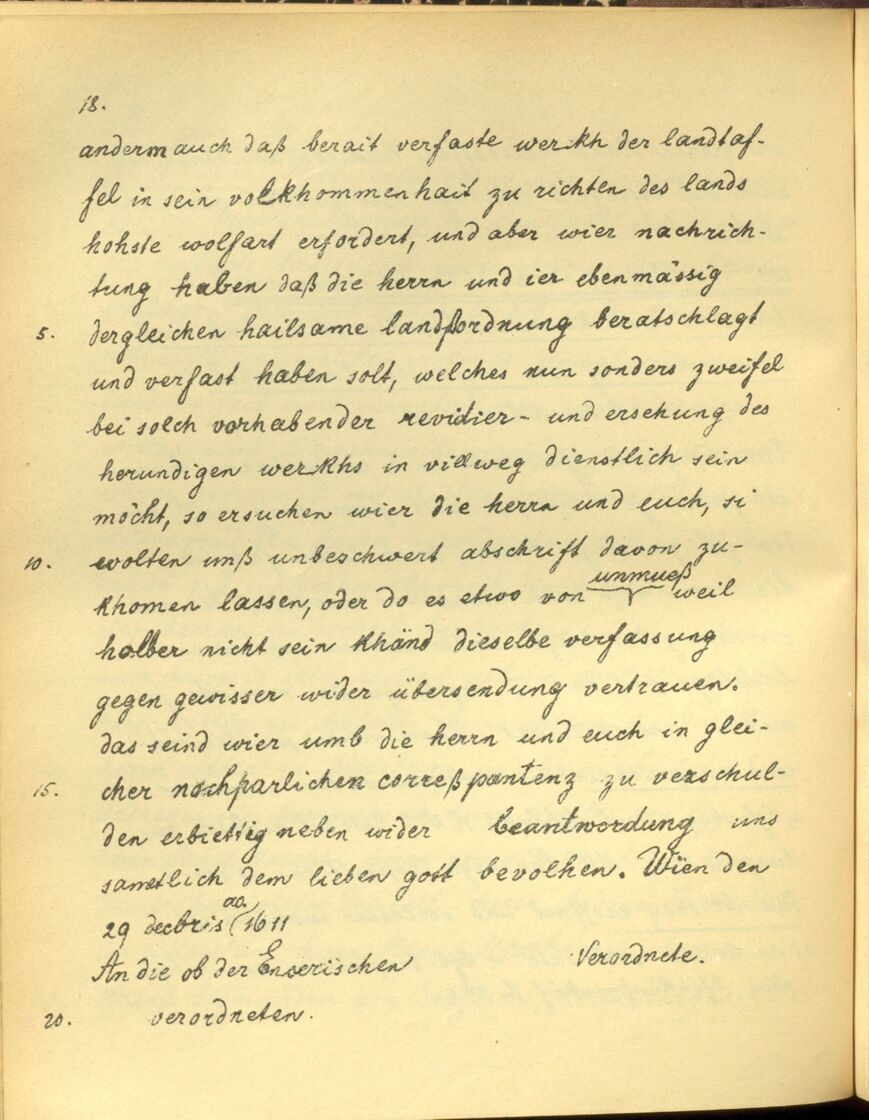 18.
anderm auch daß berait verfaste werkh der landtaf-
fel in sein volkhommenhait zu richten des lands
hohste wolfart erfordert, und aber wier nachrich-
tung haben daß die herrn und ier ebenmässig
5. dergleichen hailsame landßordnung beratschlagt
und verfast haben solt, welches nun sonders zweifel
bei solch vorhabender revidier- und ersehung des
herundigen werkhs in villweg dienstlich sein
möcht, so ersuchen wier die herrn und euch, si
10. wolten unß unbeschwert abschrift davon zu-
khomen lassen, oder do es etwo von unmueß weil
halber nicht sein khänd dieselbe verfassung
gegen gewisser wider übersendung vertrauen.
das seind wier umb die herrn und euch in glei-
15. cher nochparlichen correßpantenz zu verschul-
den erbiettig neben wider beantwordung uns
sametlich dem lieben gott bevolhen. Wien den
29 decbris ao. 1611
An die ob der Enserischen Verordnete.
20. verordneten.